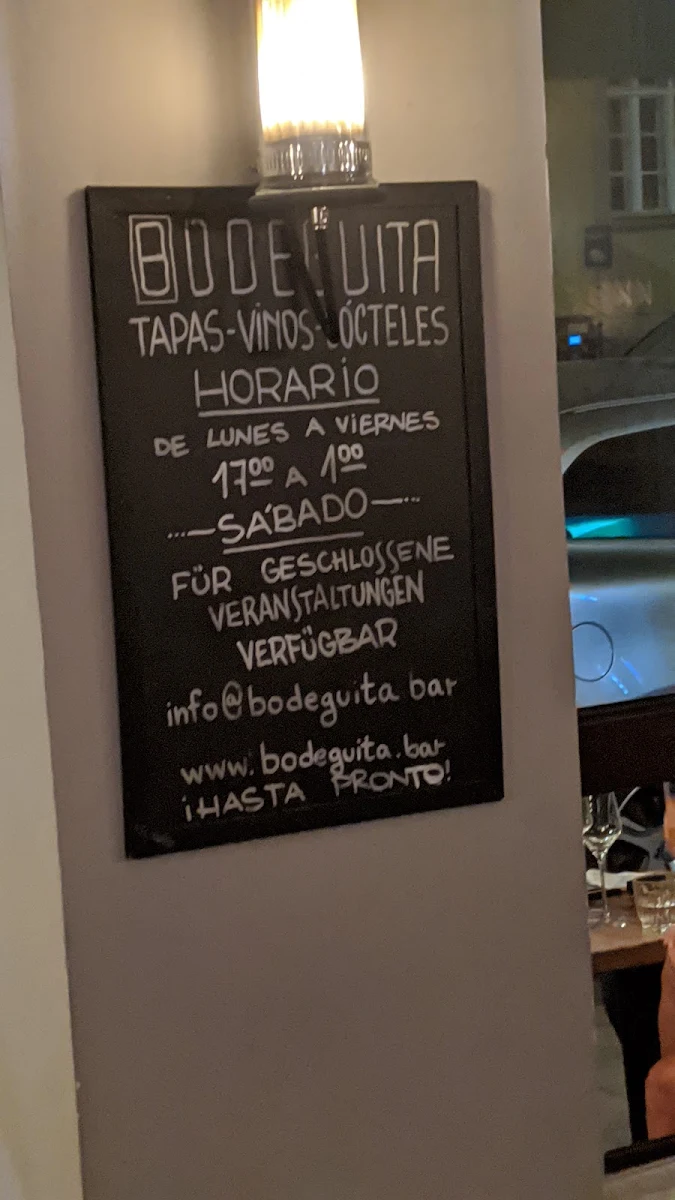 BODEGUITA
TAPAS-VINOS-CÓCTELES
HORARIO
DE LUNES A VIERNES
17⁰⁰ A 1⁰⁰
...—SÁBADO—...
FÜR GESCHLOSSENE
VERANSTALTUNGEN
VERFÜGBAR
info@bodeguita bar
www.bodeguita.bar
¡HASTA PRONTO!